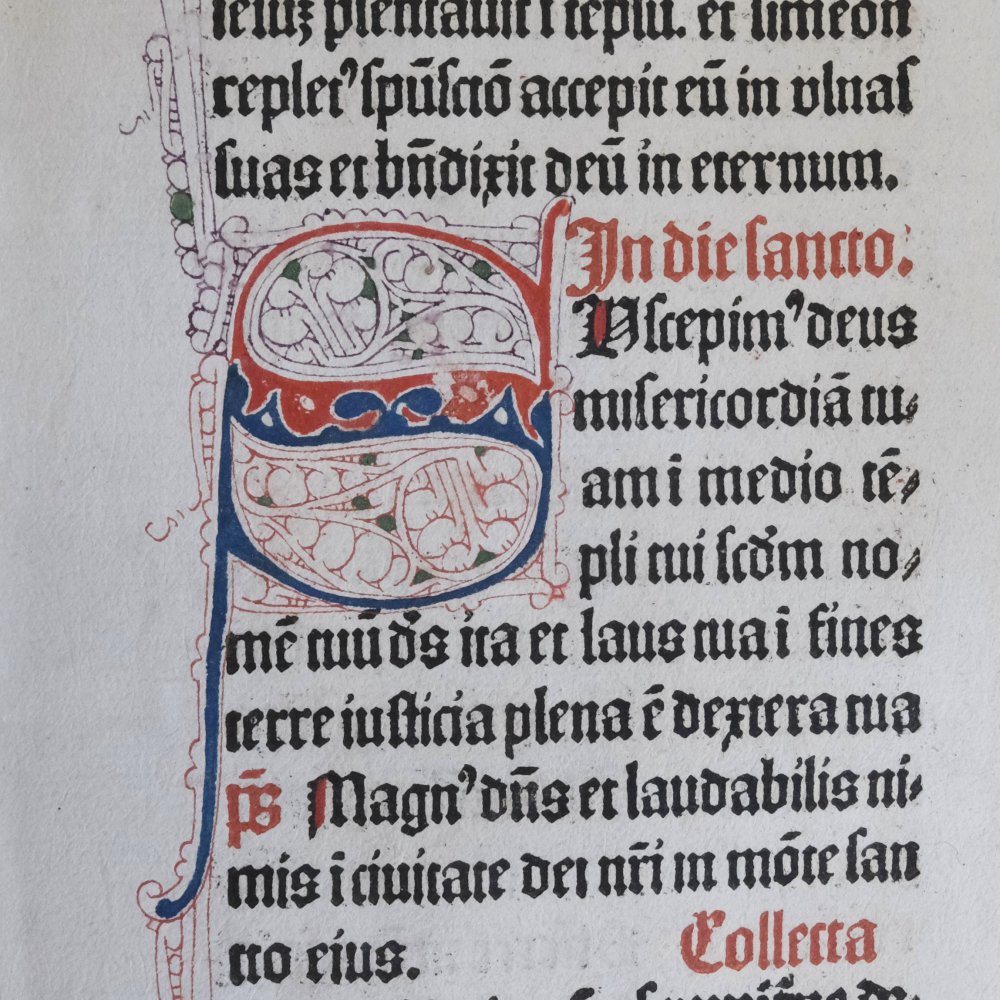 replet⁹ spūsctō accepit eū in vlnas
suas et bn̄dixit deū in eternum.
In die sancto:
SUscepim⁹ deus
misericordiā tu⸗
am ī medio tē⸗
pli tui scdm̄ no⸗
mē tuū ds̄ ita et laus tua ī fines
terre iusticia plena ē dextera tua
ps̄ Magn⁹ dn̄s et laudabilis ni⸗
mis ī ciuitate dei nr̄i in mōte san
cto eius.
Collecta